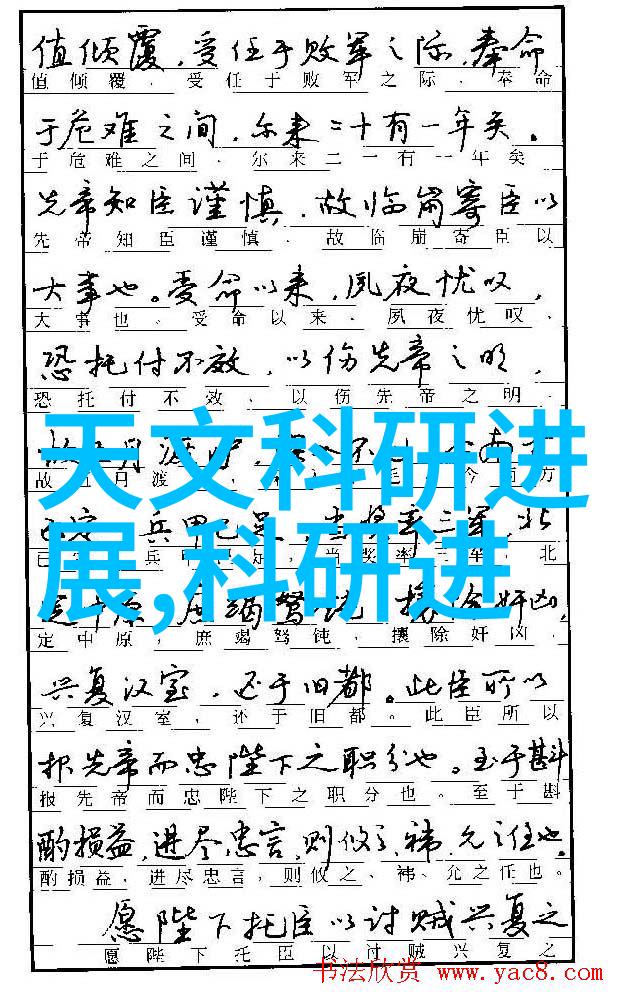 值倾覆，受任于败军之际，奉命
值倾覆，受任于败军之际，奉命
于危难之间，尔来二十有一年矣。
于危难之间，尔来二一有一年矣
先帝知臣谨慎，故临崩寄臣以
先帝知臣谨慎，故临崩寄臣以
大事也。受命以来，夙夜忧叹，
大事也。受命以来，夙夜忧叹，
恐托付不效，以伤先帝之明，
恐托付不效，以伤先帝之明，
天文科研进
展,科研进
故五月渡 今南方
兵甲已足，当奖率三军，北
兵甲已足，当奖率三军，北
定中原，庶竭驽钝，攘除奸凶，
定中原，庶竭驽钝，攘除奸凶，
兴复汉室，还于旧都。此臣所以
兴复汉室，还于旧都。此臣所以
报先帝而忠陛下之职分也。至于斟
报先帝而忠陛下之职分也。至于斟
酌损益，进尽忠言，则攸之、祎、允之任也。
酌损益，进尽忠言，则攸之、祎、允之任也。
愿陛下托臣以讨贼兴复之
愿陛下托臣以讨贼兴复之
书法欣赏 www.yac8.com